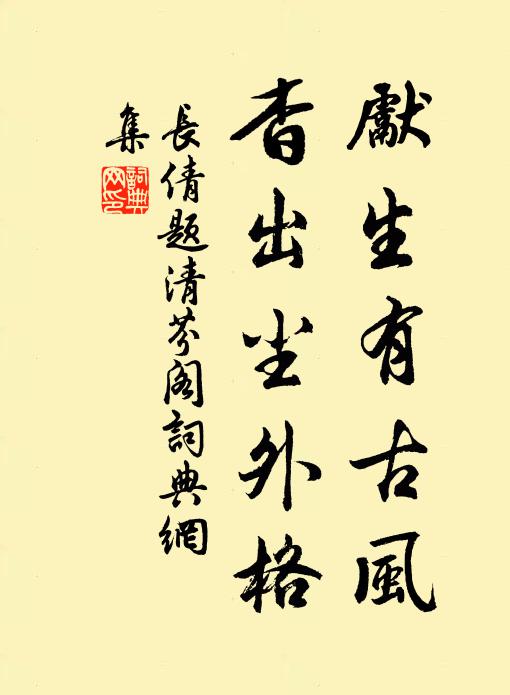 獻生有古風
杳出尘外格
長倩題清芬阁詞典網
集
詞典网印